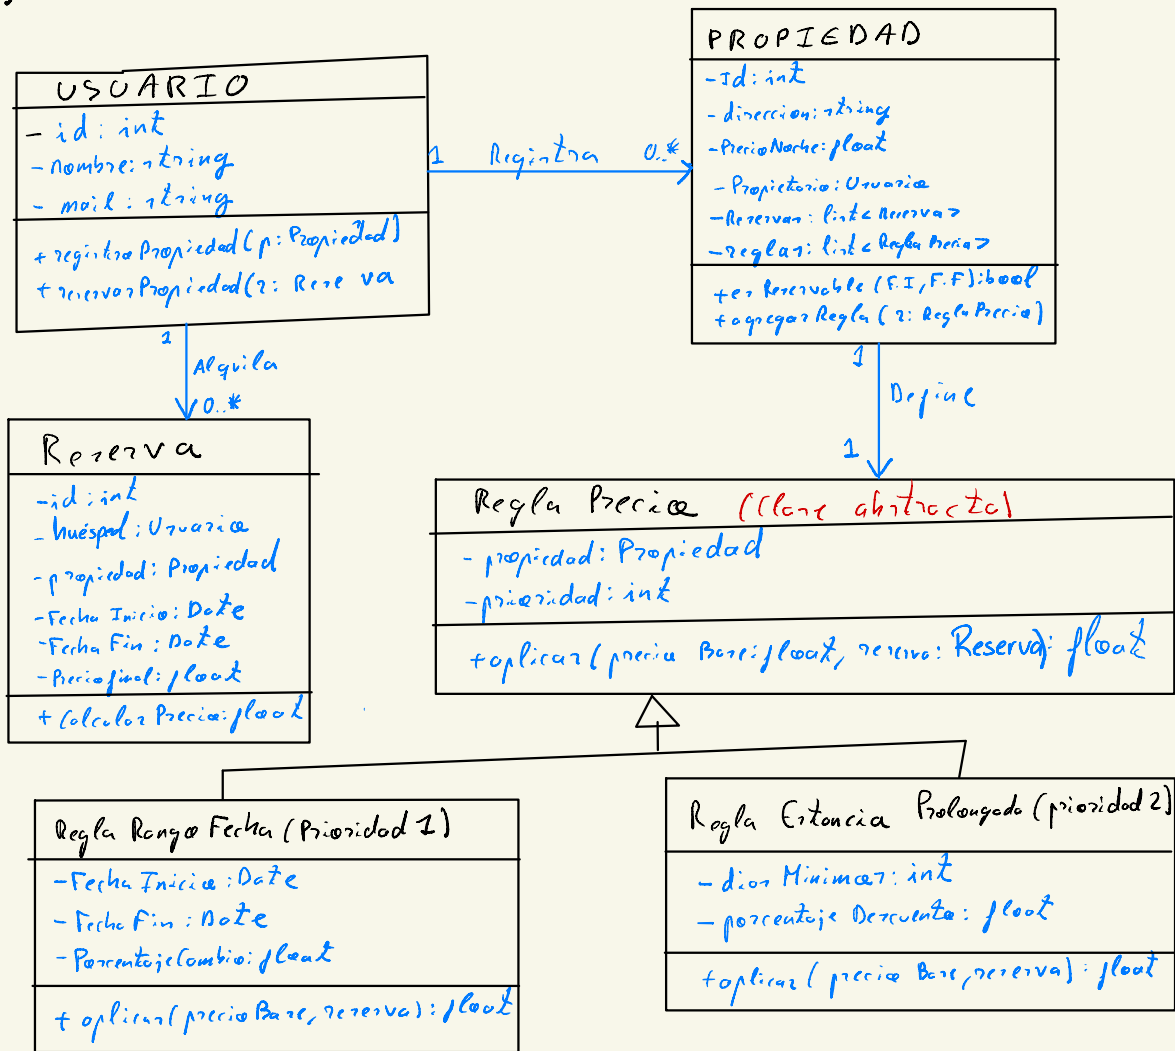 USUARIO
- id: int
- nombre: string
- mail: string
+ registraPropiedad(p: Propiedad)
+ reservarPropiedad(r: Rese va
1 Registra 0..*
PROPIEDAD
- Id: int
- direccion: string
- PrecioNoche: float
- Propietario: Usuario
- Reservas: list<Reserva>
- reglas: list<Regla Precio>
+ es Reservable (F.I, F.F): bool
+ agregar Regla (r: Regla Precio)
1
Alquila
0..*
1
Define
1
Reserva
- id: int
- huésped: Usuario
- propiedad: Propiedad
- Fecha Inicio: Date
- Fecha Fin: Date
- Precio final: float
+ Calcular Precio: float
Regla Precio (Clase abstracta)
- propiedad: Propiedad
- prioridad: int
+ aplicar (precio Base: float, reserva: Reserva): float
Regla Rango Fecha (Prioridad 1)
- Fecha Inicio: Date
- Fecha Fin: Date
- Porcentaje Cambio: float
+ aplicar (precio Base, reserva): float
Regla Estancia Prolongada (prioridad 2)
- dias Minimos: int
- porcentaje Descuento: float
+ aplicar (precio Base, reserva): float